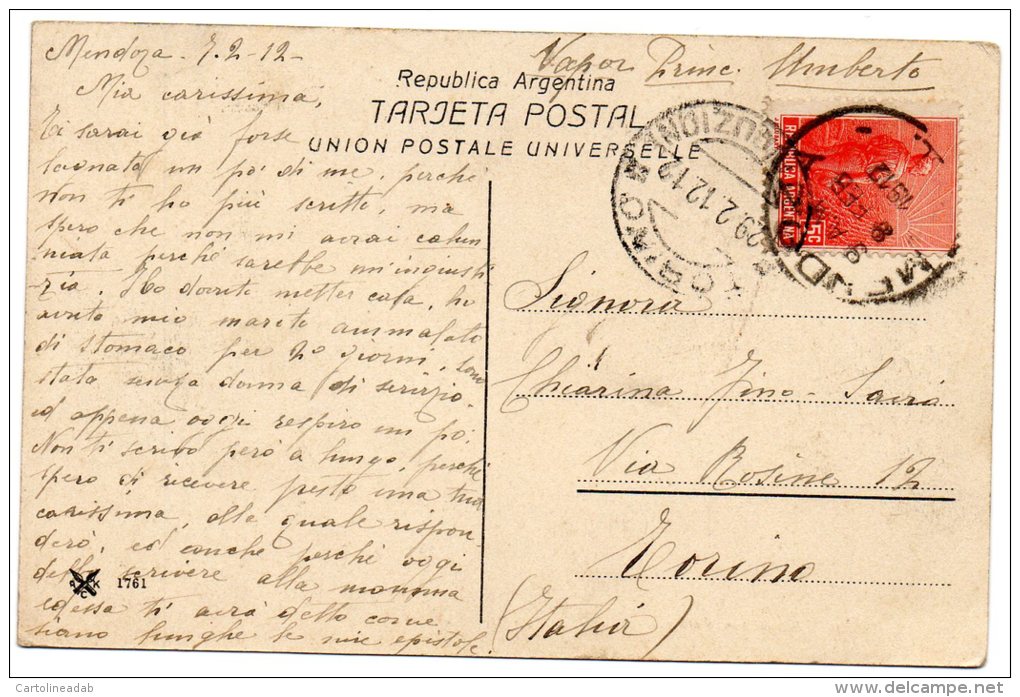 Mendoza 7.2-12-
Vapor Princ. Umberto
Mia carissima,
Republica Argentina
TARJETA POSTAL
UNION POSTALE UNIVERSELLE
Ti sarai già forse
lagnata un po' di me, perchè
non ti ho più scritto, ma
spero che non mi avrai calun
niata perchè sarebbe un'ingiusti
zia. Ho dovuto metter casa, ho
avuto mio marito ammalato
di stomaco per 20 giorni, sono
stata senza donna di servizio.
ed appena oggi respiro un pò.
Non ti scrivo però a lungo, perchè
spero di ricevere presto una tua
carissima, alla quale rispon
derò, ed anche perchè oggi
scrivere alla mamma
ed essa ti avrà detto come
siano lunghe le mie epistole.
REPUBLICA ARGENTINA
5C
MENDOZA
1912
TORINO
29.2.12
Signora
Chiarina Fino-
Via Rosine 12
Torino
(Italia)
RCK
1761
Cartolineadab
www.delcampe.net